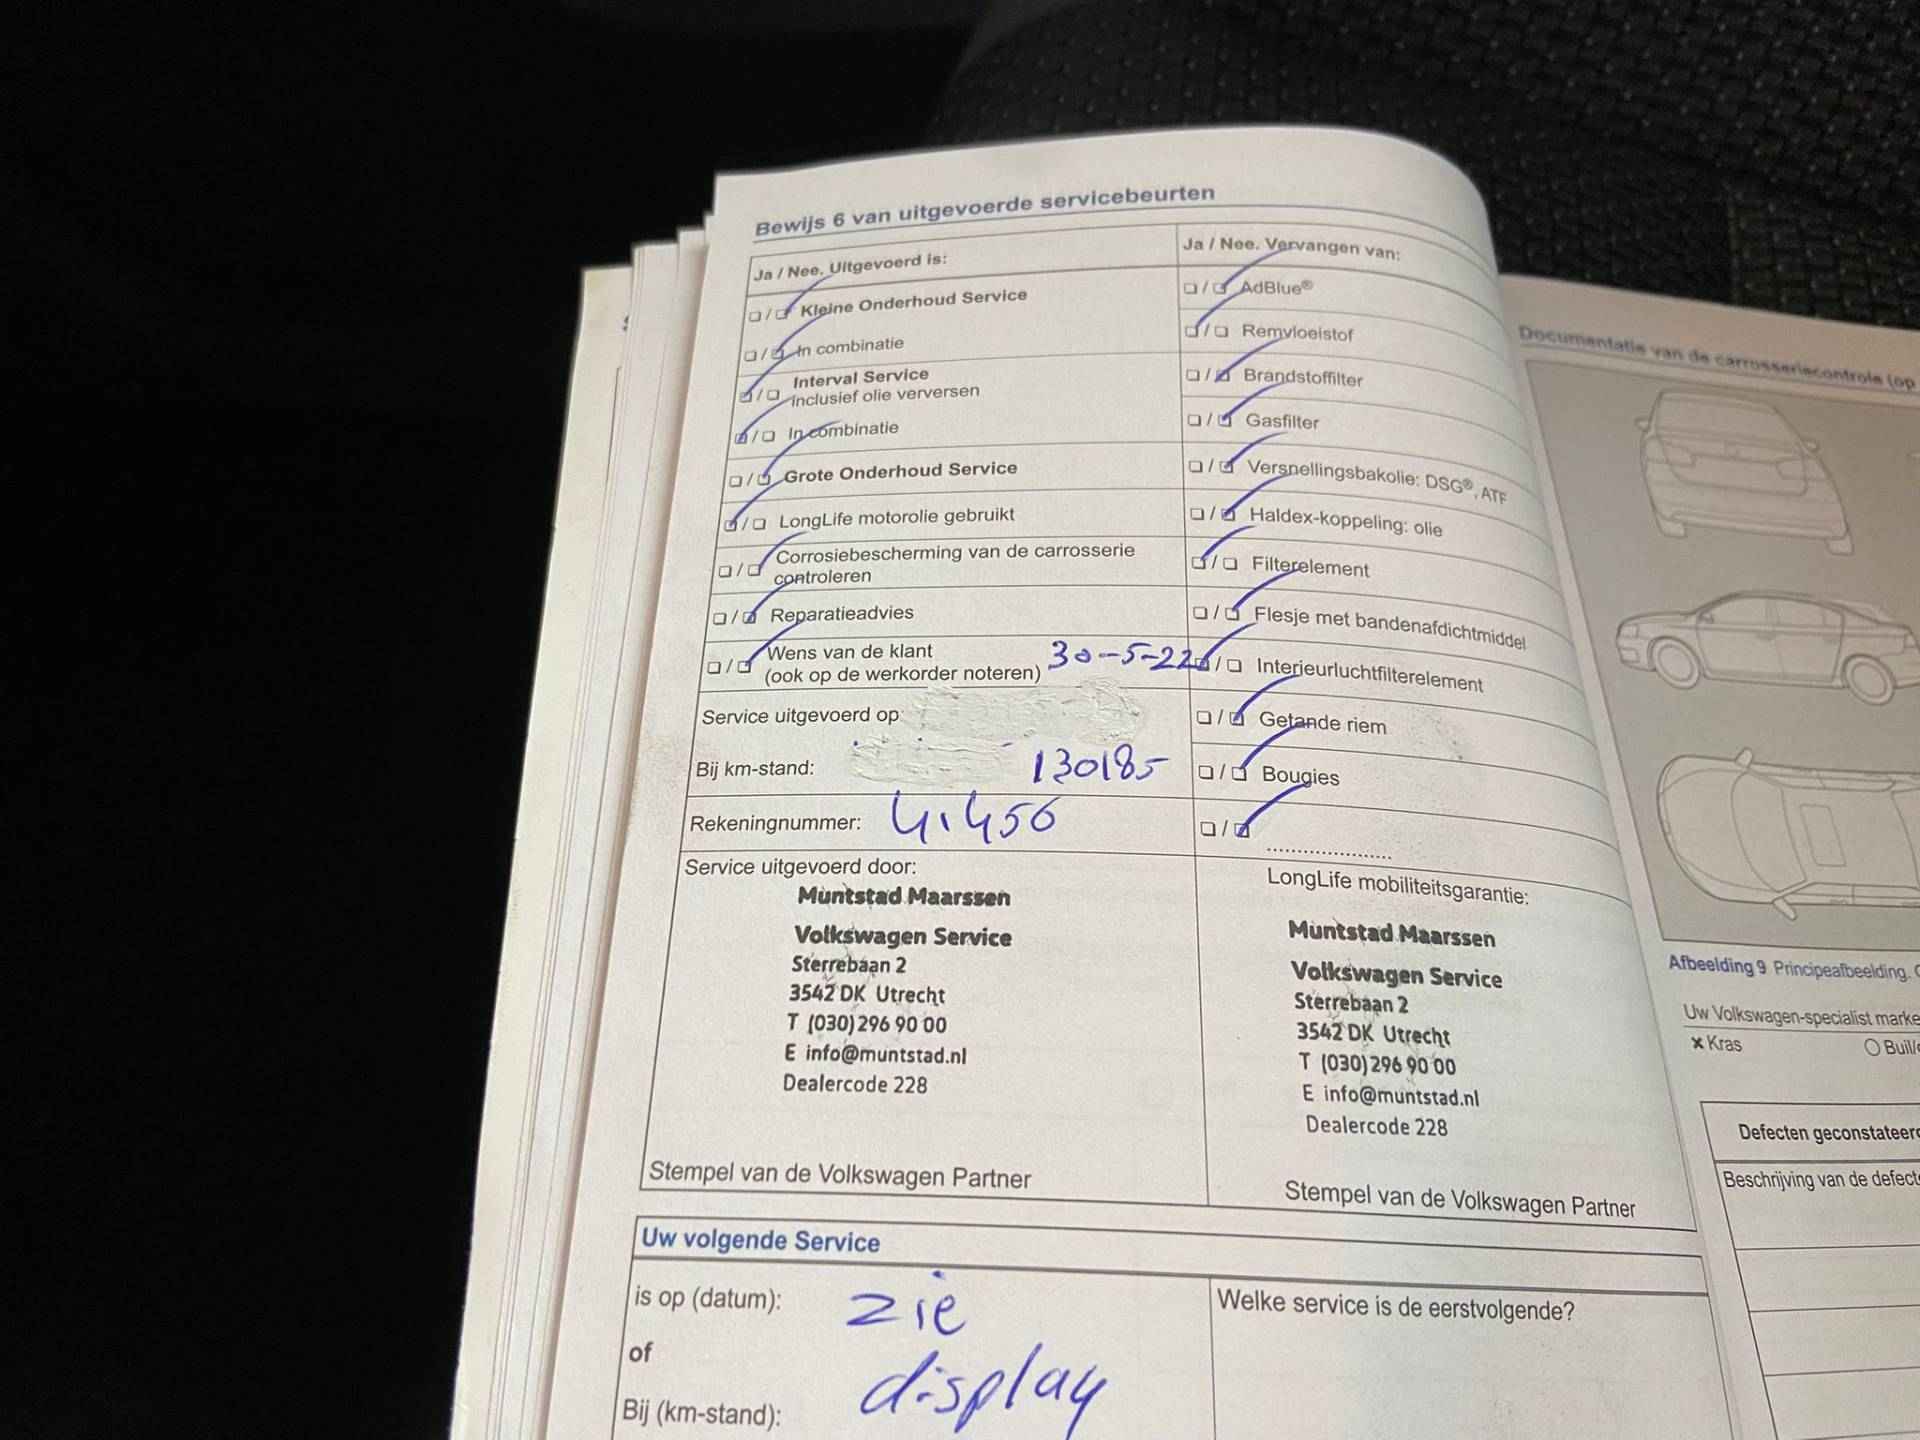 Bewijs 6 van uitgevoerde servicebeurten
Ja / Nee. Uitgevoerd is:
Kleine Onderhoud Service
In combinatie
Interval Service
Inclusief olie verversen
In combinatie
Grote Onderhoud Service
LongLife motorolie gebruikt
Corrosiebescherming van de carrosserie
controleren
Reparatieadvies
Wens van de klant
(ook op de werkorder noteren)
30-5-22
Service uitgevoerd op:
Bij km-stand:
130185
Rekeningnummer:
41456
Ja / Nee. Vervangen van:
AdBlue®
Remvloeistof
Brandstoffilter
Gasfilter
Versnellingsbakolie: DSG®, ATF
Haldex-koppeling: olie
Filterelement
Flesje met bandenafdichtmiddel
Interieurluchtfilterelement
Getande riem
Bougies
....................
Service uitgevoerd door:
Muntstad Maarssen
Volkswagen Service
Sterrebaan 2
3542 DK Utrecht
T (030) 296 90 00
E info@muntstad.nl
Dealercode 228
Stempel van de Volkswagen Partner
LongLife mobiliteitsgarantie:
Muntstad Maarssen
Volkswagen Service
Sterrebaan 2
3542 DK Utrecht
T (030) 296 90 00
E info@muntstad.nl
Dealercode 228
Stempel van de Volkswagen Partner
Uw volgende Service
is op (datum):
zie
of
Bij (km-stand):
display
Welke service is de eerstvolgende?
Documentatie van de carrosseriecontrole (op
Afbeelding 9 Principeafbeelding.
Uw Volkswagen-specialist marke
Kras
Buil/
Defecten geconstateer
Beschrijving van de defect